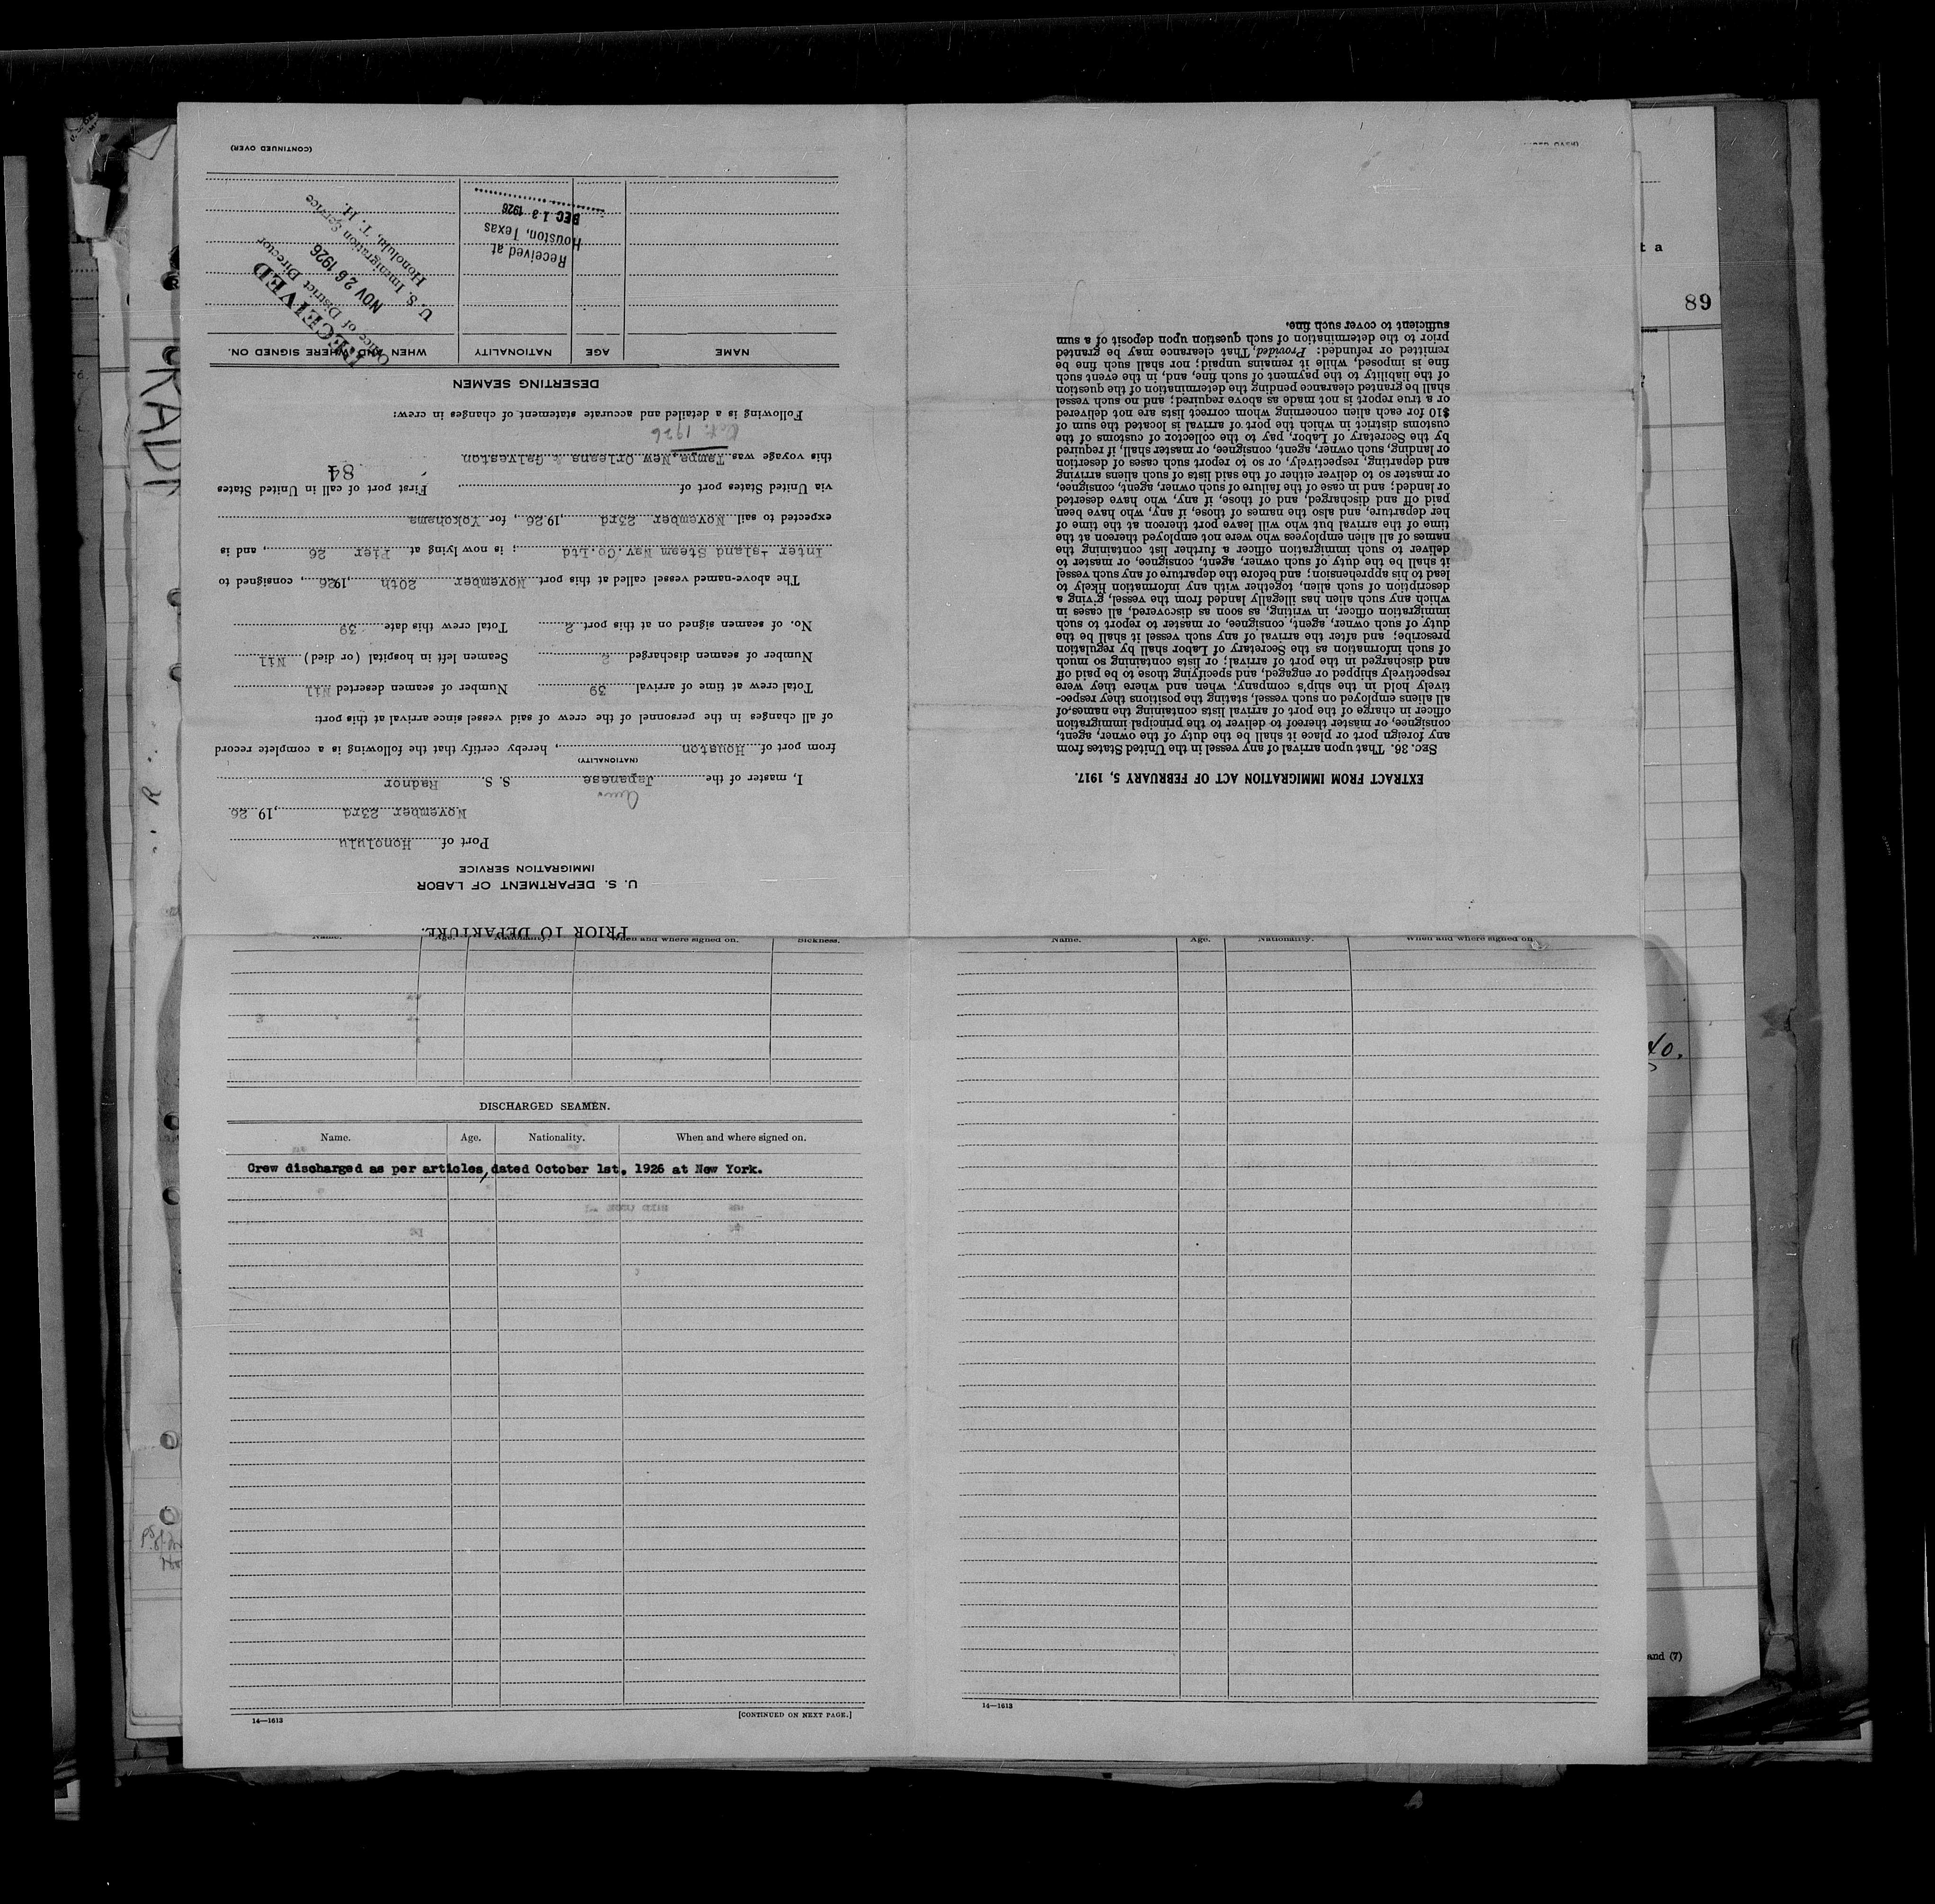 PRIOR TO DEPARTURE.
U. S. DEPARTMENT OF LABOR
IMMIGRATION SERVICE
Port of Honolulu
November 23rd, 19 26
I, master of the Japanese S. S. Radnor
(NATIONALITY)
from port of Houston, hereby certify that the following is a complete record
of all changes in the personnel of the crew of said vessel since arrival at this port:
Total crew at time of arrival 39 Number of seamen deserted Nil
Number of seamen discharged 2 Seamen left in hospital (or died) Nil
No. of seamen signed on at this port 2 Total crew this date 39
The above-named vessel called at this port November 20th, 1926, consigned to
Inter-Island Steam Nav.Co.Ltd; is now lying at Pier 26, and is
expected to sail November 23rd, 19 26, for Yokohama
via United States port of First port of call in United States
84
this voyage was Tampa, New Orleans & Galveston
Oct. 1926
Following is a detailed and accurate statement of changes in crew:
DESERTING SEAMEN
NAME AGE NATIONALITY WHEN AND WHERE SIGNED ON.
RECEIVED
Office of District Director
NOV 26 1926
U. S. Immigration Service
Honolulu, T. H.
Received at
Houston, Texas
DEC 13 1926
(CONTINUED OVER)
EXTRACT FROM IMMIGRATION ACT OF FEBRUARY 5, 1917.
SEC. 36. That upon arrival of any vessel in the United States from
any foreign port or place it shall be the duty of the owner, agent,
consignee, or master thereof to deliver to the principal immigration
officer in charge of the port of arrival lists containing the names of
all aliens employed on such vessel, stating the positions they respec-
tively hold in the ship's company, when and where they were
respectively shipped or engaged, and specifying those to be paid off
and discharged in the port of arrival; or lists containing so much
of such information as the Secretary of Labor shall by regulation
prescribe; and after the arrival of any such vessel it shall be the
duty of such owner, agent, consignee, or master to report to such
immigration officer, in writing, as soon as discovered, all cases in
which any such alien has illegally landed from the vessel, giving a
description of such alien, together with any information likely to
lead to his apprehension; and before the departure of any such vessel
it shall be the duty of such owner, agent, consignee, or master to
deliver to such immigration officer a further list containing the
names of all alien employees who were not employed thereon at the
time of the arrival but who will leave port thereon at the time of
her departure, and also the names of those, if any, who have been
paid off and discharged, and of those, if any, who have deserted
or landed; and in case of the failure of such owner, agent, consignee,
or master so to deliver either of the said lists of such aliens arriving
and departing, respectively, or so to report such cases of desertion
or landing, such owner, agent, consignee, or master shall, if required
by the Secretary of Labor, pay to the collector of customs of the
customs district in which the port of arrival is located the sum of
$10 for each alien concerning whom correct lists are not delivered
or a true report is not made as above required; and no such vessel
shall be granted clearance pending the determination of the question
of the liability to the payment of such fine, and, in the event such
fine is imposed, while it remains unpaid; nor shall such fine be
remitted or refunded: Provided, That clearance may be granted
prior to the determination of such question upon deposit of a sum
sufficient to cover such fine.
Name. Age. Nationality. When and where signed on. Sickness.
DISCHARGED SEAMEN.
Name. Age. Nationality. When and where signed on.
Crew discharged as per articles, dated October 1st. 1926 at New York.
14—1613 [CONTINUED ON NEXT PAGE.]
Name. Age. Nationality. When and where signed on
14—1613
t a
89
and (7)